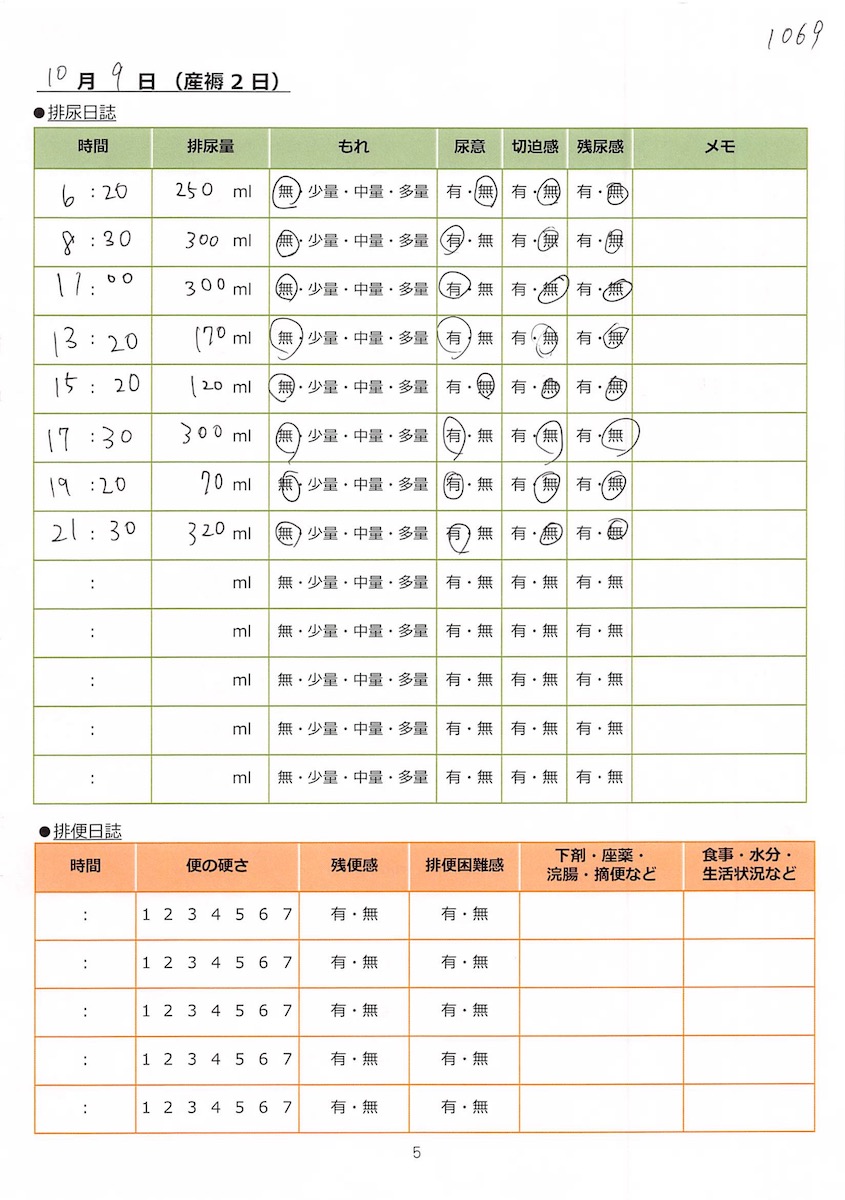 1069
10月9日（産褥2日）
●排尿日誌
時間 排尿量 もれ 尿意 切迫感 残尿感 メモ
6:20 250 ml 無・少量・中量・多量 有・無 有・無 有・無
8:30 300 ml 無・少量・中量・多量 有・無 有・無 有・無
11:00 300 ml 無・少量・中量・多量 有・無 有・無 有・無
13:20 170 ml 無・少量・中量・多量 有・無 有・無 有・無
15:20 120 ml 無・少量・中量・多量 有・無 有・無 有・無
17:30 300 ml 無・少量・中量・多量 有・無 有・無 有・無
19:20 70 ml 無・少量・中量・多量 有・無 有・無 有・無
21:30 320 ml 無・少量・中量・多量 有・無 有・無 有・無
: ml 無・少量・中量・多量 有・無 有・無 有・無
: ml 無・少量・中量・多量 有・無 有・無 有・無
: ml 無・少量・中量・多量 有・無 有・無 有・無
: ml 無・少量・中量・多量 有・無 有・無 有・無
: ml 無・少量・中量・多量 有・無 有・無 有・無
●排便日誌
時間 便の硬さ 残便感 排便困難感 下剤・座薬・浣腸・摘便など 食事・水分・生活状況など
: 1 2 3 4 5 6 7 有・無 有・無
: 1 2 3 4 5 6 7 有・無 有・無
: 1 2 3 4 5 6 7 有・無 有・無
: 1 2 3 4 5 6 7 有・無 有・無
: 1 2 3 4 5 6 7 有・無 有・無
5